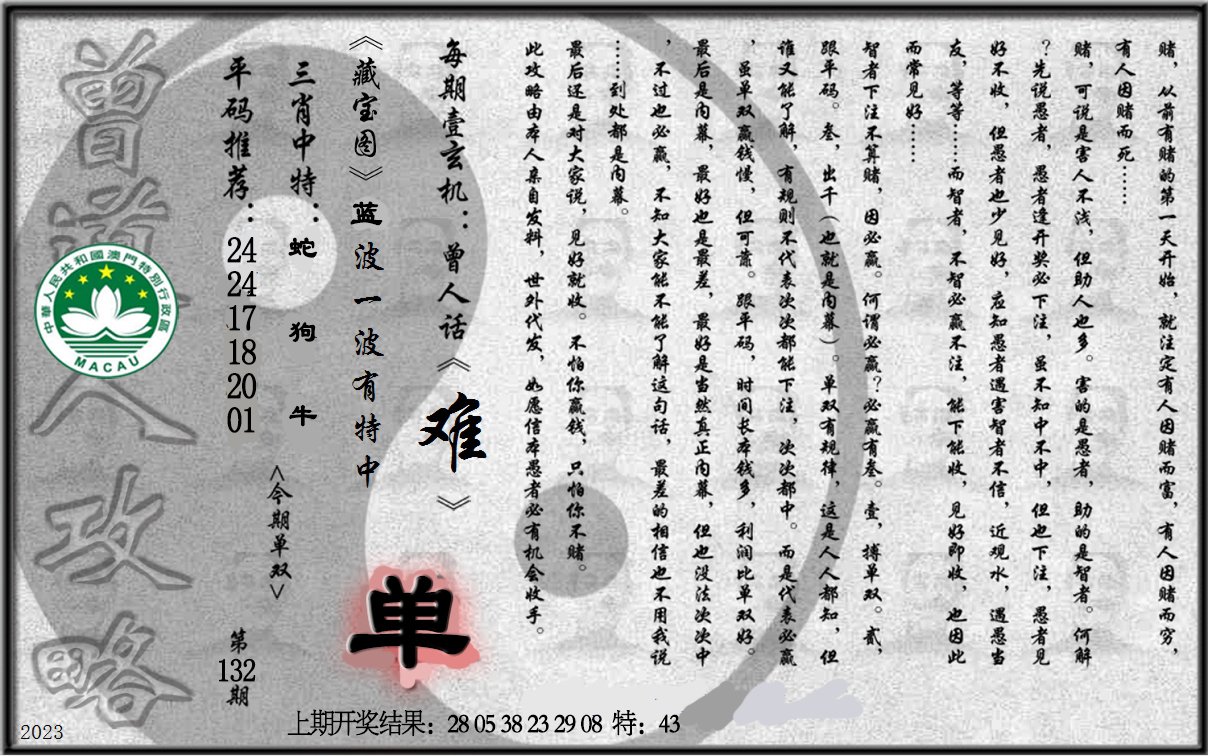 赌，从前有赌的第一天开始，就注定有人因赌而富，有人因赌而穷，
有人因赌而死……
赌，可说是害人不浅，但助人也多。害的是愚者，助的是智者。何解
？先说愚者，愚者逢开奖必下注，虽不知中不中，但也下注，愚者见
好不收，但愚者也少见好，应知愚者遇害智者不信，近观水，遇愚当
友，等等……而智者，不智必赢不注，能下能收，见好即收，也因此
而常见好……
智者下注不算赌，因必赢。何谓必赢？必赢有叁。壹，搏单双。贰，
跟平码。叁，出千（也就是内幕）。单双有规律，这是人人都知，但
谁又能了解，有规则不代表次次都能下注，次次都中。而是代表必赢
，虽单双赢钱慢，但可靠。跟平码，时间长本钱多，利润比单双好。
最后是内幕，最好也是最差，最好是当然真正内幕，但也没法次次中
，不过也必赢，不知大家能不能了解这句话，最差的相信也不用我说
……到处都是内幕。
最后还是对大家说，见好就收。不怕你赢钱，只怕你不赌。
此攻略由本人亲自发料，世外代发，如愿信本愚者必有机会收手。
每期壹玄机：曾人话《难》
《藏宝图》蓝波一波有特中
单
三肖中特：蛇 狗 牛
<今期单双>
平码推荐：24 24 17 18 20 01
第132期
曾道人攻略
中華人民共和國澳門特別行政區
MACAU
上期开奖结果：28 05 38 23 29 08 特：43
2023